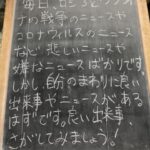 毎日、ロシアとウクライ
ナの戦争のニュースや
コロナウィルスのニュース
など悲しいニュースや
嫌なニュースばかりです。
しかし、自分のまわりに良い
出来事やニュースがある
はずです。良い出来事
さがしてみましょう!